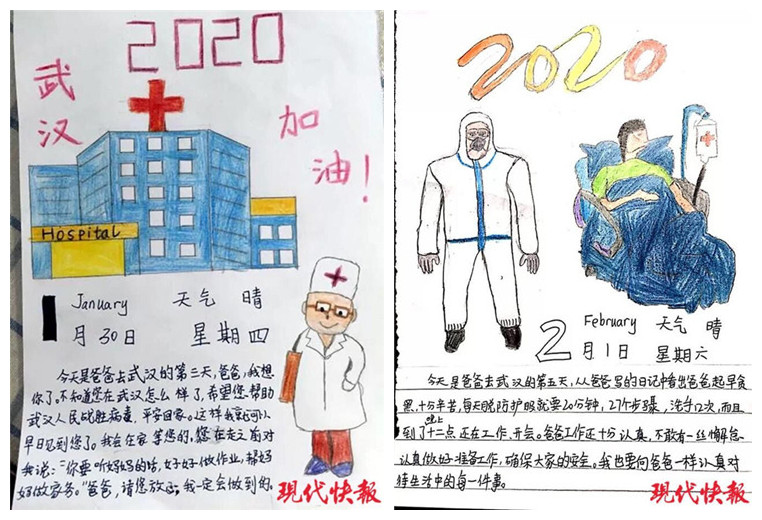 2020
武汉
加油！
Hospital
1 January 天气 晴
月 30日 星期四
今天是爸爸去武汉的第三天,爸爸,我想
你了。不知道您在武汉怎么样了,希望您帮助
武汉人民战胜病毒,平安回家。这样我就可以
早日见到您了。我会在家等您的。您在走之前对
我说:“你要听妈妈的话,好好做作业,帮妈
妈做家务。”爸爸,请您放心,我一定会做到的。
现代快报
2020
2 February 天气 晴
月1日 星期六
今天是爸爸去武汉的第五天,从爸爸写的日记中看出爸爸起早贪
黑,十分辛苦,每天脱防护服就要20分钟,27个步骤,洗手12次,而且
到了晚上十二点正在工作、开会。爸爸工作还十分认真,不敢有一丝懈怠,
认真做好准备工作,确保大家的安全。我也要向爸爸一样认真对
待生活中的每一件事。
现代快报